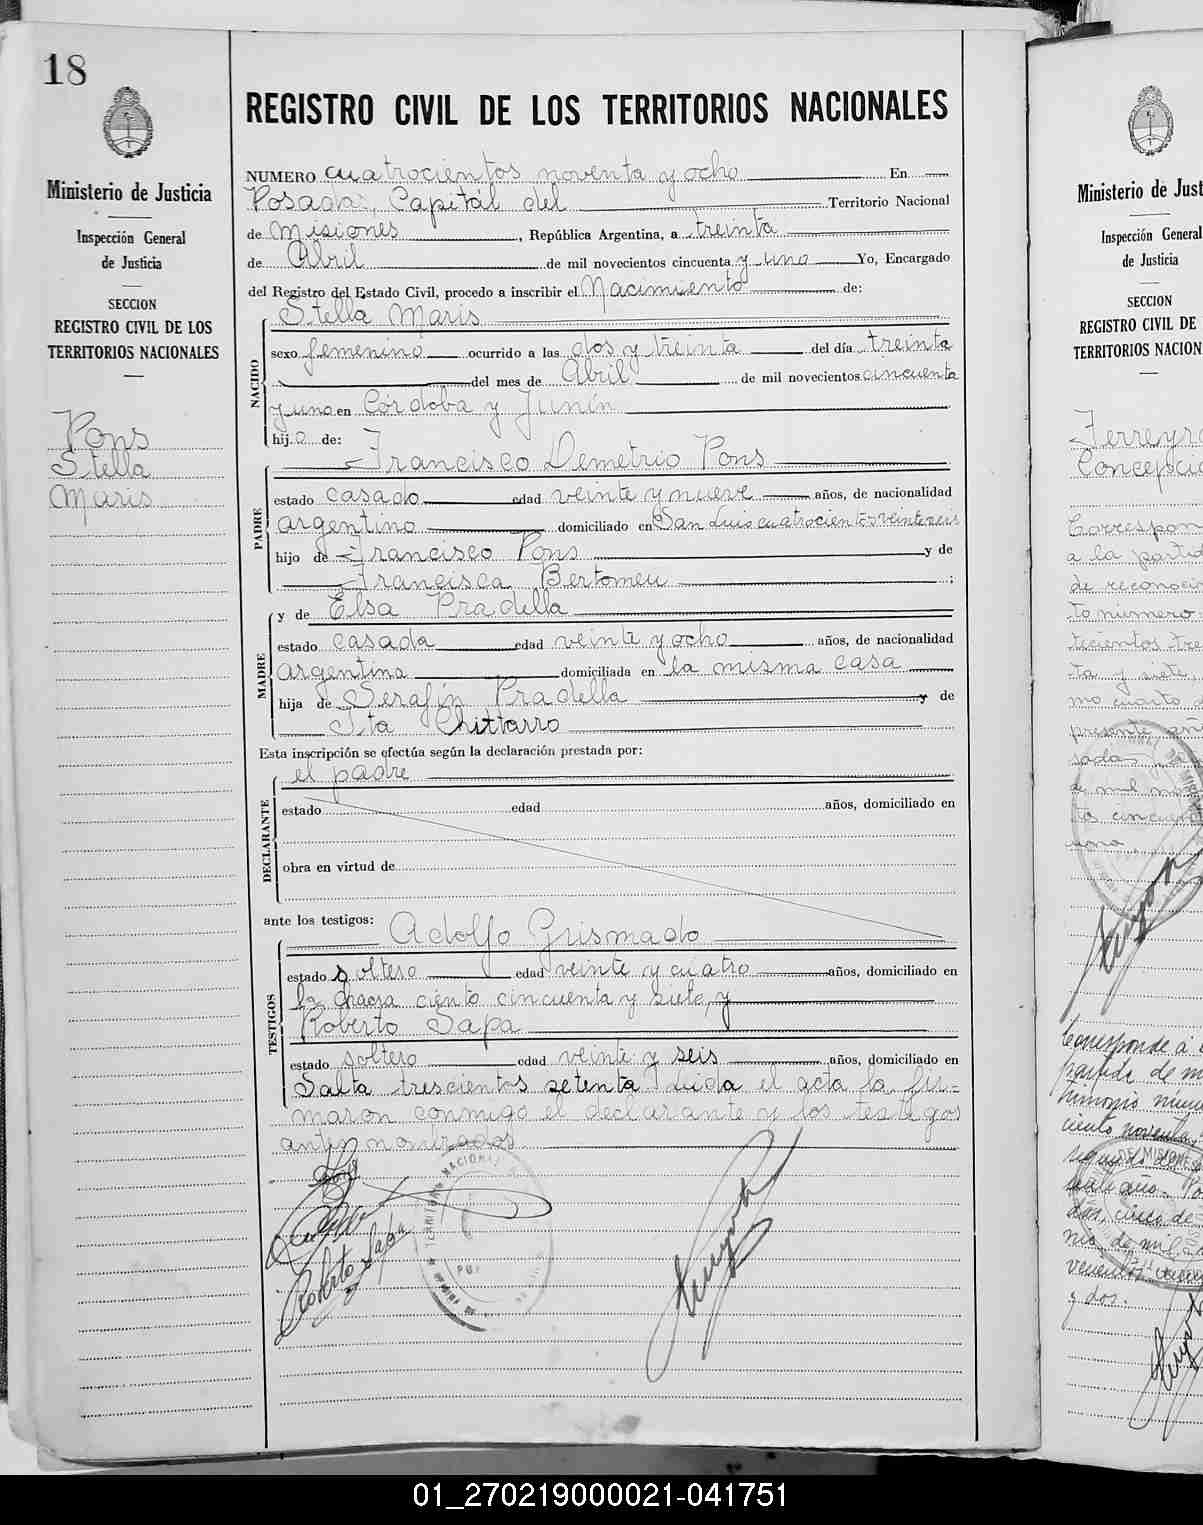 18
Ministerio de Justicia
Inspección General
de Justicia
SECCION
REGISTRO CIVIL DE LOS
TERRITORIOS NACIONALES
Pons
Stella
Maris
REGISTRO CIVIL DE LOS TERRITORIOS NACIONALES
NUMERO cuatrocientos noventa y ocho En
Posadas, Capitál del Territorio Nacional
de Misiones, República Argentina, a treinta
de Abril de mil novecientos cincuenta y uno Yo, Encargado
del Registro del Estado Civil, procedo a inscribir el Nacimiento de:
Stella Maris
NACIDO
sexo femenino ocurrido a las dos y treinta del día treinta
del mes de Abril de mil novecientos cincuenta
y uno en Córdoba y Junín
hija de:
Francisco Demetrio Pons
PADRE
estado casado edad veinte y nueve años, de nacionalidad
argentino domiciliado en San Luis cuatrocientos veinteseis
hijo de Francisco Pons y de
Francisca Bertomeu;
y de Elsa Pradella
MADRE
estado casada edad veinte y ocho años, de nacionalidad
argentina domiciliada en la misma casa
hija de Serafín Pradella y de
Ita Chittarro
Esta inscripción se efectúa según la declaración prestada por:
el padre
DECLARANTE
estado edad años, domiciliado en
obra en virtud de
ante los testigos:
Adolfo Grismado
TESTIGOS
estado soltero edad veinte y cuatro años, domiciliado en
la chacra ciento cincuenta y siete, y
Roberto Sapa
estado soltero edad veinte y seis años, domiciliado en
Salta trescientos setenta. Leida el acta la fir=
maron conmigo el declarante y los testigos
antes nombrados
Roberto Sapa
Ministerio de Just
Inspección General
de Justicia
SECCION
REGISTRO CIVIL DE
TERRITORIOS NACION
Ferreyra
Concepció
Correspon
a la partid
de reconoci
to número
tecientos tre
ta y siete,
mo cuarto d
presente añ
sadas
de mil no
tos cincuen
uno.
Corresponde á
partida de m
trimonio núme
ciento noventa
y dos.
01_270219000021-041751